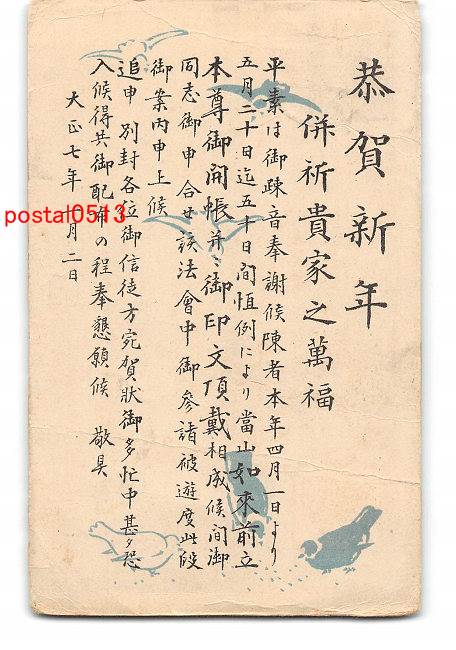 恭賀新年
併祈貴家之萬福
平素は御疎音奉謝候陳者本年四月一日より
五月二十日迄五十日間恒例により當山如來前立
本尊御開帳并ニ御印文頂戴相成候間御
同志御申合せ該法會中御參詣被遊度此段
御案内申上候
追申 別封各位御信徒方宛賀状御多忙中甚タ恐
入候得共御配布の程奉懇願候 敬具
大正七年 月二日
postal0513